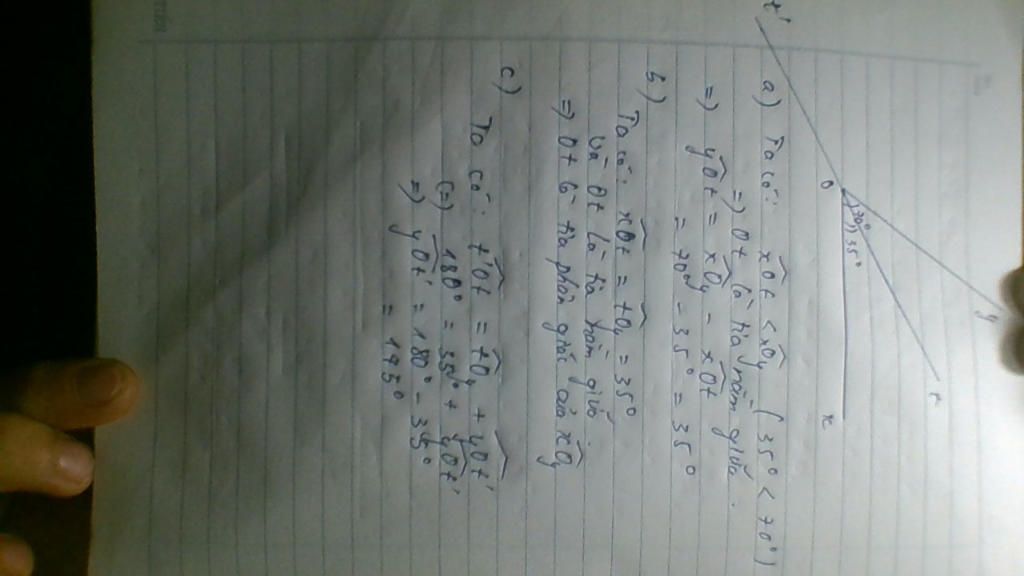 t'
y
t
O
70°
35°
x
a) Ta có: xOt < xOy (35° < 70°)
=) Ot là tia nằm giữa.
=) yOt = xOy - xOt
= 70° - 35° = 35°
b)
Ta có: xOt = tOy = 35°
Và Ot là tia nằm giữa.
=) Ot là tia phân giác của xOy
c)
Ta có: t'Ot = tOy + yOt'
(=) 180° = 35° + yOt'
=) yOt' = 180° - 35°
= 145°